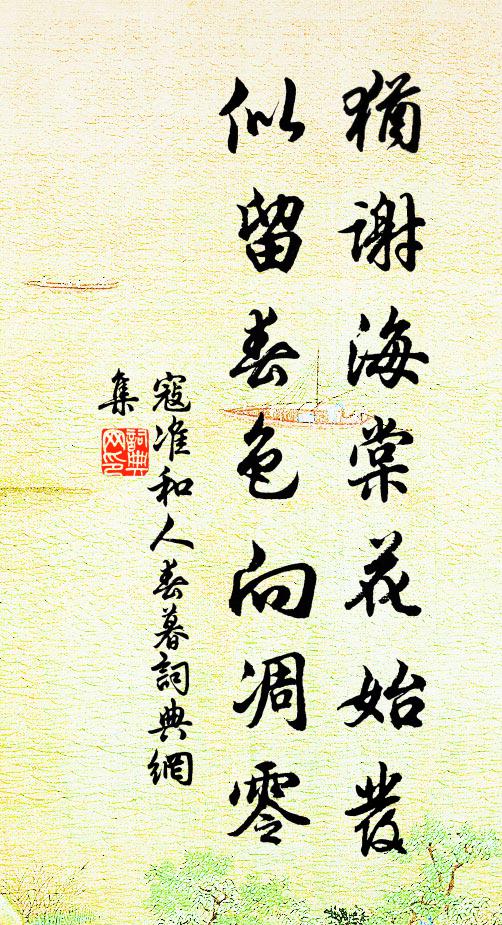 猶謝海棠花始發
似留春色向凋零
寇准和人春暮詞典網
集
詞典